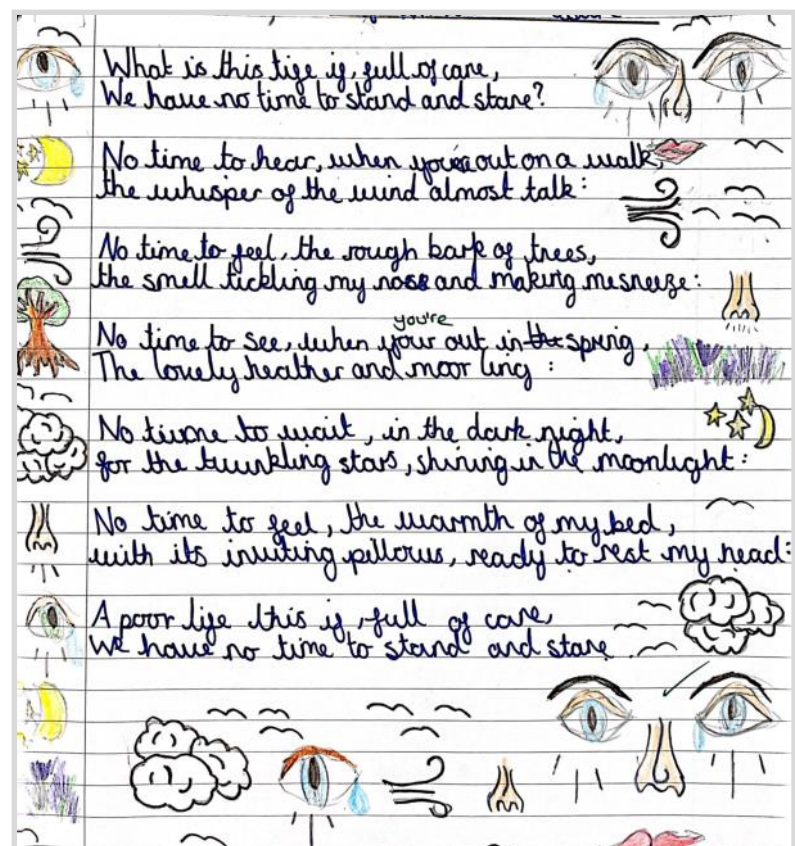 What is this life if, full of care,
We have no time to stand and stare?
No time to hear, when you're out on a walk,
the whisper of the wind almost talk:
No time to feel, the rough bark of trees,
the smell tickling my nose and making me sneeze:
you're
No time to see, when your out in the spring,
The lovely heather and moor ling :
No time to wait, in the dark night,
for the twinkling stars, shining in the moonlight:
No time to feel, the warmth of my bed,
with its inviting pillows, ready to rest my head:
A poor life this if, full of care,
We have no time to stand and stare